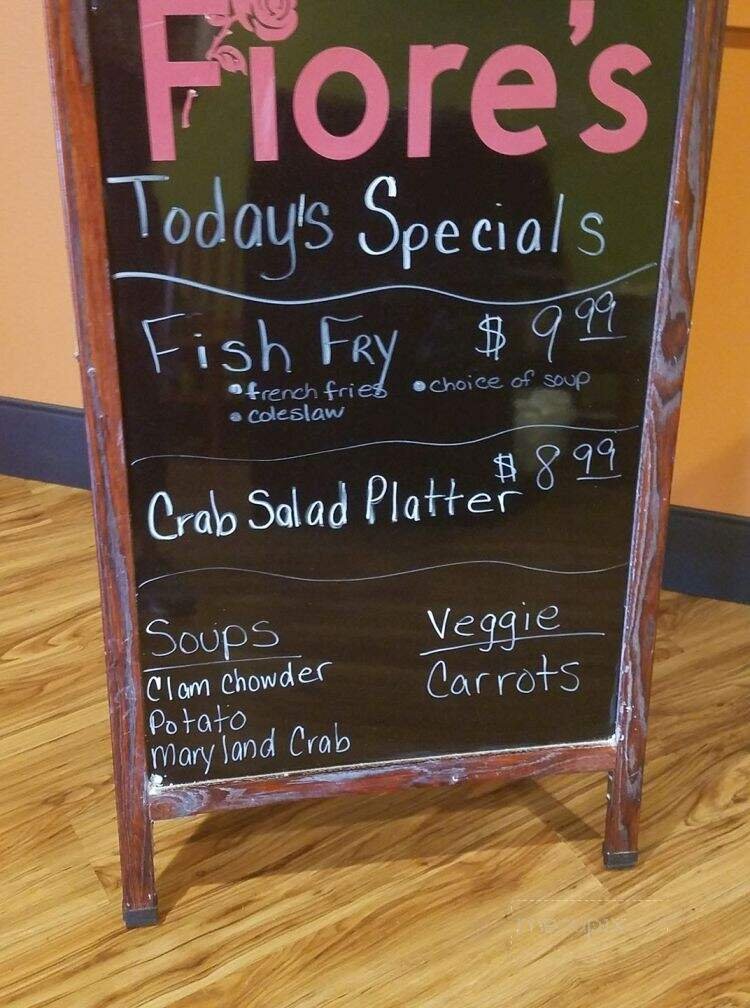 Fiore's
Today's Specials
Fish Fry $9.99
•french fries •choice of soup
•coleslaw
$8.99
Crab Salad Platter
Soups
Clam Chowder
Potato
Maryland Crab
Veggie
Carrots